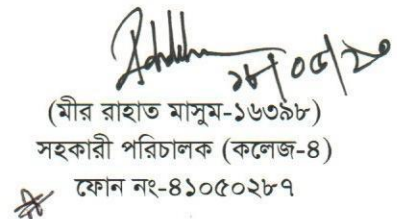 ১৮/০৫/২০
(মীর রাহাত মাসুম-১৬৩৯৮)
সহকারী পরিচালক (কলেজ-৪)
ফোন নং-৪১০৫০২৮৭